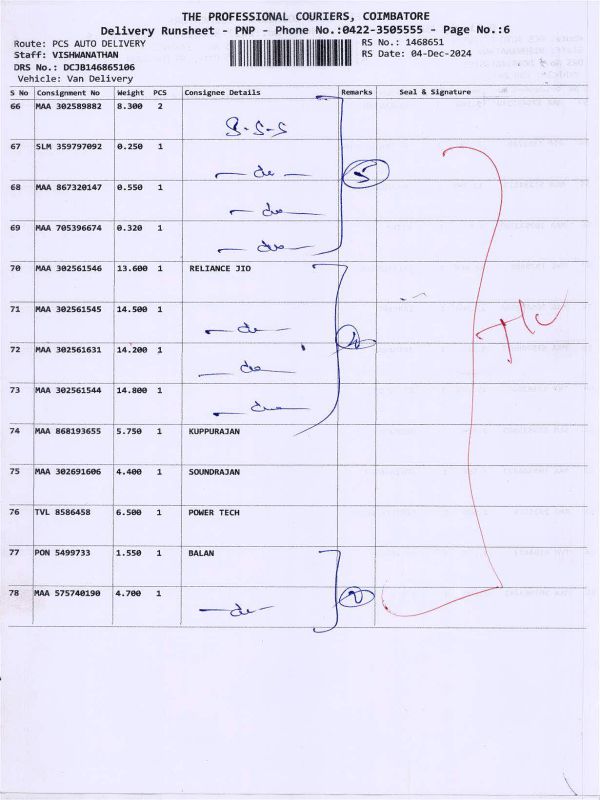 THE PROFESSIONAL COURIERS, COIMBATORE
Delivery Runsheet - PNP - Phone No.:0422-3505555 - Page No.:6
Route: PCS AUTO DELIVERY RS No.: 1468651
Staff: VISHWANATHAN RS Date: 04-Dec-2024
DRS No.: DCJB146865106
Vehicle: Van Delivery
S No Consignment No Weight PCS Consignee Details Remarks Seal & Signature
66 MAA 302589882 8.300 2
S-S-S
67 SLM 359797092 0.250 1
do 5
68 MAA 867320147 0.550 1
do
69 MAA 705396674 0.320 1
do
70 MAA 302561546 13.600 1 RELIANCE JIO
71 MAA 302561545 14.500 1
do
72 MAA 302561631 14.200 1
do
73 MAA 302561544 14.800 1
do
74 MAA 868193655 5.750 1 KUPPURAJAN
75 MAA 302691606 4.400 1 SOUNDRAJAN
76 TVL 8586458 6.500 1 POWER TECH
77 PON 5499733 1.550 1 BALAN
78 MAA 575740190 4.700 1
do 2